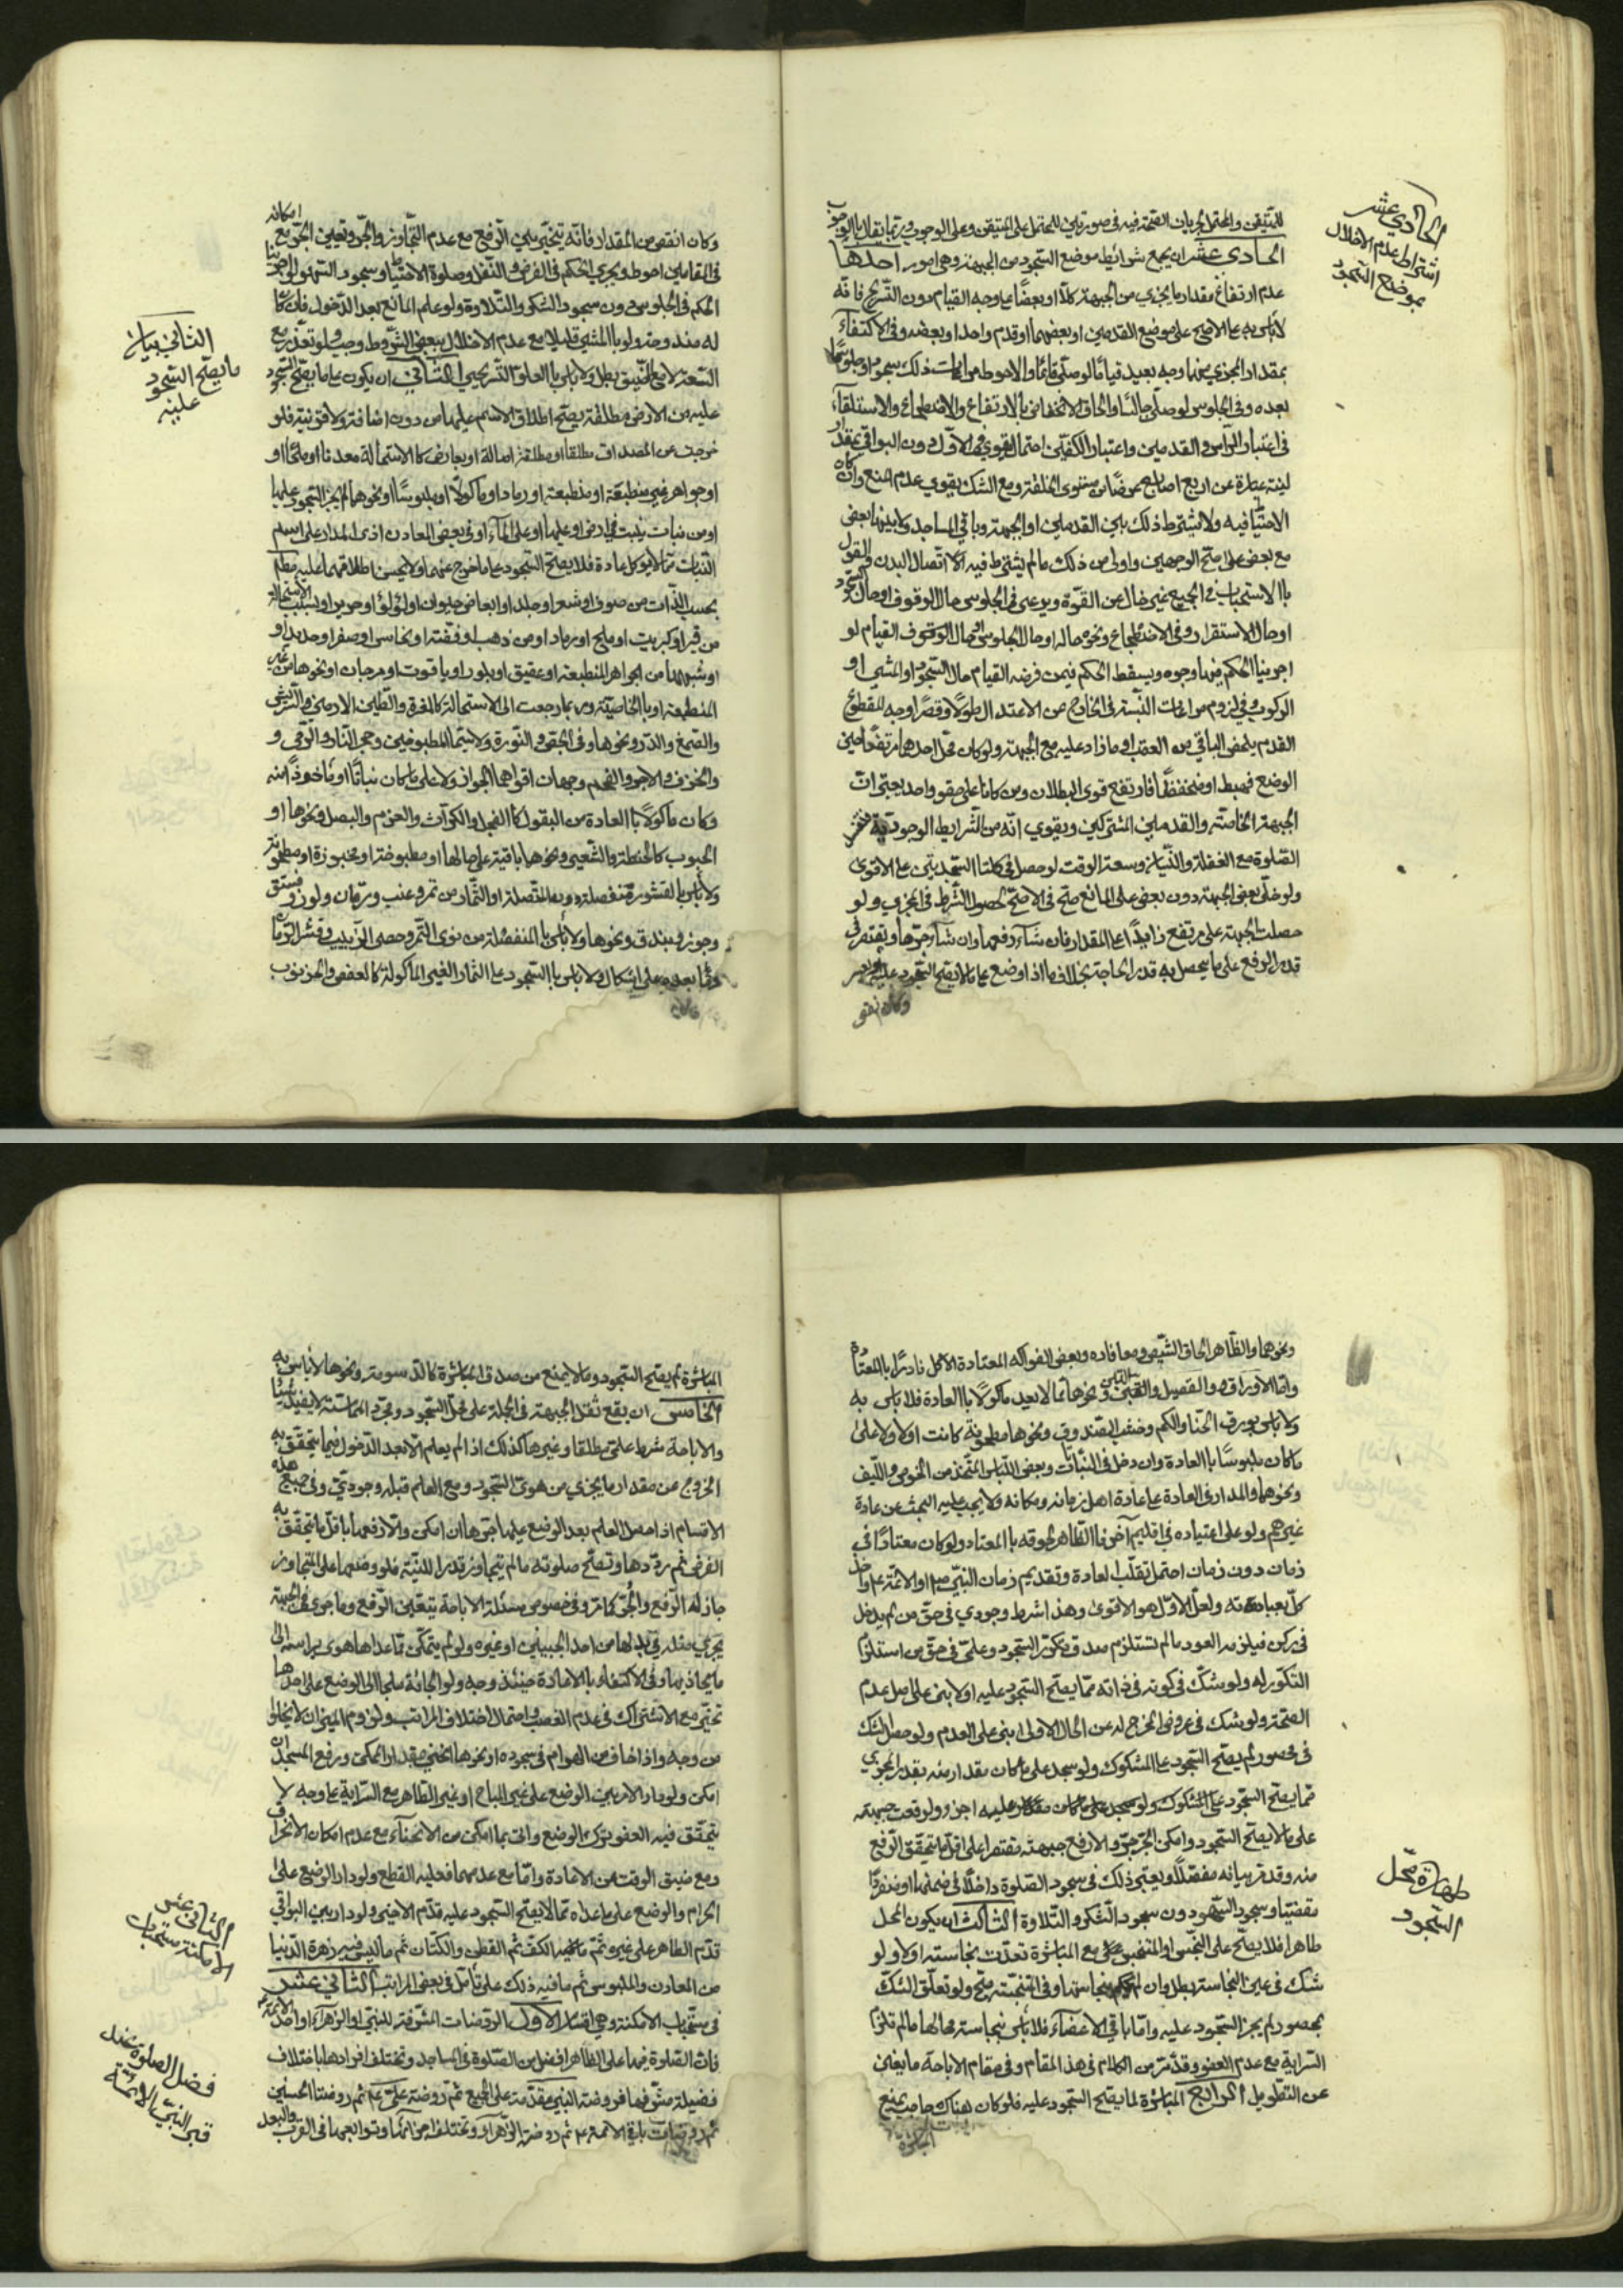 الحادي عشر
اشتراط عدم الاخلال
بموضع السجود
للمتيقن والمحتمل لجريان الصحة فيه في صورتين للمحتمل على المتيقن وعلى الوجوب وربما يقال بالوجوب
الحادي عشر ان يجمع شرائط موضع السجود من الجبهة وهي امور احدها
عدم ارتفاع مقدار ما يجزي من الجبهة كلا او بعضا على وجه القيام دون التسريح فانه
لا باس به على الاصح على موضع القدمين او بعضهما او قدم واحد او بعضه وفي الاكتفاء
بمقدار المجزي منهما وجه بعيد قياما لو صلى قائما والاحوط مراعات ذلك سجودا وجلوسا
بعده وفي الجلوس لو صلى جالسا والحاق الانخفاض بالارتفاع والاضطجاع والاستلقاء
في اعتبار الراس والقدمين واعتبار الكفين احتمال قوي في الاول دون البواقي بمقدار
لبنة عبارة عن اربع اصابع عرضا من مستوى الخلقة ومع الشك يقوي عدم المنع وان كان
الاحتياط فيه ولا يشترط ذلك بين القدمين او الجبهة وباقي المساجد ولا بينها بعض
مع بعض على اصح الوجهين واولى من ذلك ما لم يشترط فيه الا اتصال البدن والقول
بالاستحباب في الجميع غير خال عن القوة ويرعى في الجلوس حال الوقوف او حال السجود
او حال الاستقرار وفي الاضطجاع ونحوه حاله او حال الجلوس او حال الوقوف القيام لو
اجرينا الحكم فيها وجوه ويسقط الحكم فيمن فرضه القيام حال السجود او المشي او
الركوب وفي لزوم مراعات النسبة في الخارج عن الاعتدال طولا وقصرا وجه للمقطوع
القدم يلحظ الباقي من العقب او ما زاد عليه مع الجبهة ولو كان محل احدهما مرتفعا حين
الوضع فهبط او منخفضا فارتفع قوى البطلان ومن كانا على حقو واحد يجتبى ان
الجبهة الخاصة والقدمين المشتركين ويقوي انه من الشرايط الوجودية
الصلوة مع الغفلة والنسيان وسعة الوقت لو حصل في كلتا السجدتين على الاقوى
ولو خلى بعض الجبهة دون بعض على المانع صح في الاصح لحصول الشرط في المجزي ولو
حصلت الجبهة على مرتفع زايدا على المقدار فان شاء رفعها وان شاء جرها ويقتصر في
قدر الرفع على ما يحصل به قدر الحاجة بخلاف ما اذا وضع على ما لا يصح السجود عليه
الثاني بيان
ما يصح السجود
عليه
وكان انقص من المقدار فانه يتخير بين الرفع مع عدم التجاوز والجر وتعين الجر مع امكانه
في المقامين احوط ويجري الحكم في الفرض والنفل وصلوة الاحتياط وسجود السهو
الحكم في الجلوس دون سجود الشكر والتلاوة ولو علم المانع بعد الدخول فان كان
له مندوحة ولو بالمشي قليلا مع عدم الاخلال ببعض الشروط وجب ولو تعذر مع
السعة لا مع الضيق بطل ولا باس بالعلو التسريحي الثاني ان يكون على ما يصح السجود
عليه من الارض مطلقة يصح اطلاق الاسم عليها من دون اضافة ولا قرينة فلو
خرجت عن المصداق مطلقا او مطلقة اصالة او بعارض كالاستحالة معدنا او ملحا او
او جواهر غير منطبعة او منطبعة او رمادا او ماكولا او ملبوسا او نحوها لم يجز السجود عليها
او من نبات ينبت في ارض او عليها او على الماء او في بعض المعادن اذ المدار على اسم
النبات مما لا يؤكل عادة فلا يصح السجود على ما خرج عنهما ولا يحسن اطلاقهما عليه مطلقا
بحسب الذات من صوف او شعر او جلد او ابعاض حيوان او لؤلؤ او حرير او بسبب الاستحالة
من قير او كبريت او ملح او رماد او من ذهب او فضة او نحاس او صفر او حديد او
او شبهها من الجواهر المنطبعة او عقيق او بلور او ياقوت او مرجان او نحوها من غير
المنطبعة او بالخاصية وربما رجعت الى الاستحالة كالمغرة والطين الارمني
والصمغ والدر ونحوها وفي الجص والنورة ولا سيما المطبوخين وحجر النار والرحى و
والخزف والاجر والفحم وجهات اقواها الجواز ولا على ما كان نباتا او ماخوذا منه
وكان ماكولا بالعادة من البقول كالفجل والكراث والثوم والبصل ونحوها او
الحبوب كالحنطة والشعير ونحوهما باقية على حالها او مطبوخة او مخبوزة او مطحونة
ولا باس بالقشور منفصلة دون المتصلة او الثمار من تمر وعنب ورمان ولوز وفستق
وجوز وبندق ونحوها ولا باس بالمنفصلة من نوى التمر وحصى الزبيب وقشر الرمان
وما بعده على اشكال ولا باس بالسجود على الثمار الغير الماكولة كالعفص والخرنوب
طهارة محل
السجود
ونحوهما والظاهر الحاق الشيص وما قاربه وبعض الفواكه المعتادة الاكل نادرا بالمعتادة
واما الاوراق والفصيل والتبن ونحوها مما لا يعد ماكولا بالعادة فلا باس به
ولا باس بورق الحنا والكم وخشب الصندوق ونحوها مطحونة كانت او لا ولا على
ما كان ملبوسا بالعادة وان دخل في النبات وبعض اللباس المتخذ من الخوص والليف
ونحوهما والمدار في العادة على عادة اهل زمانه ومكانه ولا يجب عليه البحث عن عادة
غيرهم ولو على اعتياده في اقليم آخر فالظاهر لحوقه بالمعتاد ولو كان معتادا في
زمان دون زمان احتمل تقلب العادة وتقديم زمان النبي ص او الائمة ع واخذ
كل بعبادته ولعل الاول هو الاقوى وهذا شرط وجودي في حق من لم يدخل
في ركن فيلزمه العود ما لم تستلزم صدق تكرر السجود وعلمي في حق من استلزم
التكرر له ولو شك في كونه في ذاته مما يصح السجود عليه او لا بنى على اصل عدم
الصحة ولو شك في عروض المخرج له عن الحال الاولى بنى على العدم ولو حصل الشك
في محصور لم يصح السجود على المشكوك ولو سجد على ما كان مقدار منه بقدر المجزي
مما يصح السجود عليه اجزء ولو وقعت جبهته
على ما لا يصح السجود وامكن الجر جر والا رفع جبهته مقتصرا على اقل ما يتحقق الرفع
منه وقد مر بيانه مفصلا ويعتبر ذلك في سجود الصلوة داخلا في ضمنها او منفردا
مقضيا وسجود السهو دون سجود الشكر والتلاوة الثالث ان يكون المحل
طاهرا فلا يصح على النجس او المتنجس مع المباشرة تعدت نجاسته او لا ولو
شك في عين النجاسة بطل وان لم يحكم بنجاستها وفي المتنجسة يصح ولو تعلق الشك
بمحصور لم يجز السجود عليه واما باقي الاعضاء فلا باس بنجاسة محالها ما لم تلزم
السراية مع عدم العفو وقد مر من الكلام في هذا المقام وفي مقام الاباحة ما يغني
عن التطويل الرابع المباشرة لما يصح السجود عليه فلو كان هناك حاجب يمنع
المباشرة
الثاني عشر
الامكنة مستحبات
فضل الصلوة عند
قبر النبي والائمة
المباشرة لم يصح السجود وما لا يمنع من صدق المباشرة كالدسومة ونحوها لا باس به
الخامس ان يقع ثقل الجبهة في الجملة على محل السجود ومجرد المماسة لا يفيد شيئا
والاباحة شرط علمي مطلقا وغيرها كذلك اذا لم يعلم الا بعد الدخول فيما يتحقق به
الخروج عن مقدار ما يجزي من هوى السجود ومع العلم قبله وجودي وفي جميع هذه
الاقسام اذا حصل العلم بعد الوضع عليها جرها ان امكن والا رفعها باقل ما يتحقق به
الفرض ثم ردها وتصح صلوته ما لم يتجاوز قدر اللبنة فلو وضعها على المتجاوز
جاز له الرفع والجر كما مر وفي خصوص مسئلة الاباحة يتعين الرفع وما جرى في الجبهة
يجري مثله في بدلها من احد الجبينين او غيره ولو لم يتمكن مما عداها هوى براسه الى
ما يحاذيها وفي الاكتفاء بالاعادة حينئذ وجه ولو الجائه ملجا الى الوضع على احدها
تخير مع الاشتراك في عدم الغصب واحتمال اختلاف المراتب ولزوم الميزان لا يخلو
من وجه واذا خاف من الهوام في سجوده او نحوها انحنى بقدر الممكن ورفع المسجد ان
امكن ولو دار الامر بين الوضع على غير المباح او غير الطاهر مع السراية على وجه لا
يتحقق فيه العفو ترك الوضع واتى بما امكن من الانحناء مع عدم امكان الانحراف
ومع ضيق الوقت عن الاعادة واما مع عدمهما فعليه القطع ولو دار الوضع على
الحرام والوضع على ما عداه مما لا يصح السجود عليه قدم الاخير ولو دار بين البواقي
قدم الطاهر على غيره ثم الكف ثم القطن والكتان ثم ما ليس فيه زهرة الدنيا
من المعادن والملبوس ثم ما فيه ذلك على تامل في بعض المراتب الثاني عشر
في مستحباب الامكنة وهي اقسام الاول الروضات المشرفة للنبي او الزهراء او احد الائمة ع
فان الصلوة فيها على الظاهر افضل من الصلوة في المساجد وتختلف افرادها باختلاف
فضيلة مشرفها فروضة النبي مقدمة على الجميع ثم روضة علي ع ثم روضتا الحسنين
ثم روضات باقي الائمة ع ثم روضة الزهراء وتختلف اجزائها وتوابعها في القرب والبعد